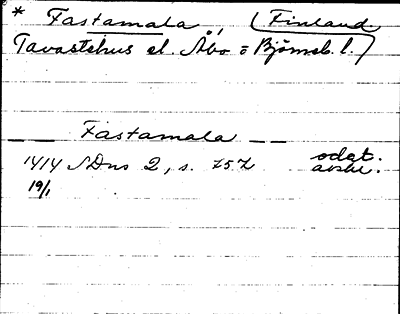 * Fastamala, (Finland
Tavastehus el. Åbo = Björneb. l.)
— Fastamala — —
1414 SDns 2, s. 757 odat. avskr.
19/1